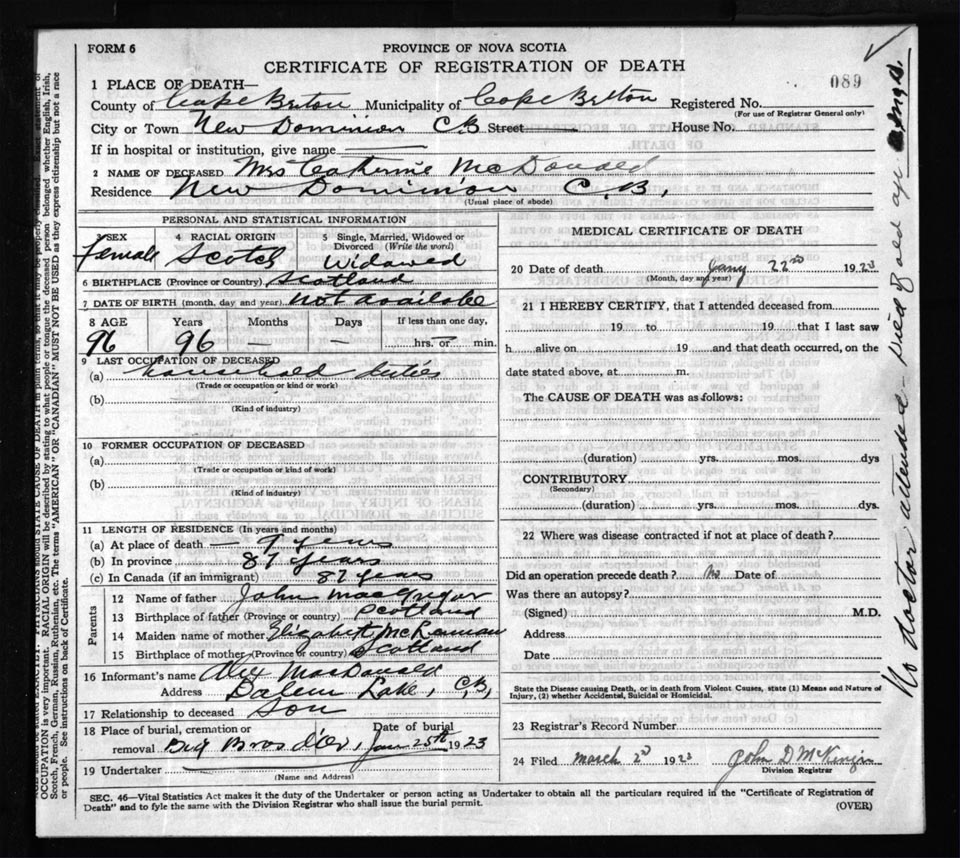 FORM 6
PROVINCE OF NOVA SCOTIA
CERTIFICATE OF REGISTRATION OF DEATH
089
1 PLACE OF DEATH—
County of Cape Breton Municipality of Cape Breton Registered No.
(For use of Registrar General only)
City or Town New Dominion C B Street House No.
If in hospital or institution, give name
2 NAME OF DECEASED Mrs Catherine McDonald
Residence New Dominion C. B.
(Usual place of abode)
PERSONAL AND STATISTICAL INFORMATION
3 SEX Female
4 RACIAL ORIGIN Scotch
5 Single, Married, Widowed or Divorced (Write the word) Widowed
6 BIRTHPLACE (Province or Country) Scotland
7 DATE OF BIRTH (month, day and year) not available
8 AGE Years Months Days If less than one day,
96 96 — — hrs. or min.
9 LAST OCCUPATION OF DECEASED
(a) household duties
(Trade or occupation or kind or work)
(b)
(Kind of industry)
10 FORMER OCCUPATION OF DECEASED
(a)
(Trade or occupation or kind or work)
(b)
(Kind of industry)
11 LENGTH OF RESIDENCE (In years and months)
(a) At place of death — 9 years
(b) In province 87 years
(c) In Canada (if an immigrant) 87 years
Parents
12 Name of father John MacGregor
13 Birthplace of father (Province or country) Scotland
14 Maiden name of mother Elizabeth
15 Birthplace of mother (Province or country) Scotland
16 Informant's name Alex MacDonald
Address Lake, C,B,
17 Relationship to deceased Son
18 Place of burial, cremation or Date of burial
removal Big Bras d'Or, Jan 25th 1923
19 Undertaker
(Name and Address)
MEDICAL CERTIFICATE OF DEATH
20 Date of death Jany 22nd 1923
(Month, day and year)
21 I HEREBY CERTIFY, that I attended deceased from
19 to 19 that I last saw
h alive on 19 and that death occurred, on the
date stated above, at m.
The CAUSE OF DEATH was as follows:
(duration) yrs. mos. dys
CONTRIBUTORY
(Secondary)
(duration) yrs. mos. dys.
22 Where was disease contracted if not at place of death?
Did an operation precede death? No Date of
Was there an autopsy?
(Signed) M.D.
Address
Date
State the Disease causing Death, or in death from Violent Causes, state (1) Means and Nature of
Injury, (2) whether Accidental, Suicidal or Homicidal.
23 Registrar's Record Number
24 Filed March 2d 1923 John D McKenzie
Division Registrar
SEC. 46—Vital Statistics Act makes it the duty of the Undertaker or person acting as Undertaker to obtain all the particulars required in the "Certificate of Registration of
Death" and to fyle the same with the Division Registrar who shall issue the burial permit.
(OVER)
No doctor attended - Died of old age
OCCUPATION is very important. RACIAL ORIGIN will be described by stating to what people or tongue the deceased person belonged whether English, Irish,
Scotch, French, German, Russian, Ruthenian, etc. The terms "AMERICAN" OR "CANADIAN" MUST NOT BE USED as they express citizenship but not a race
or people. See instructions on back of Certificate.